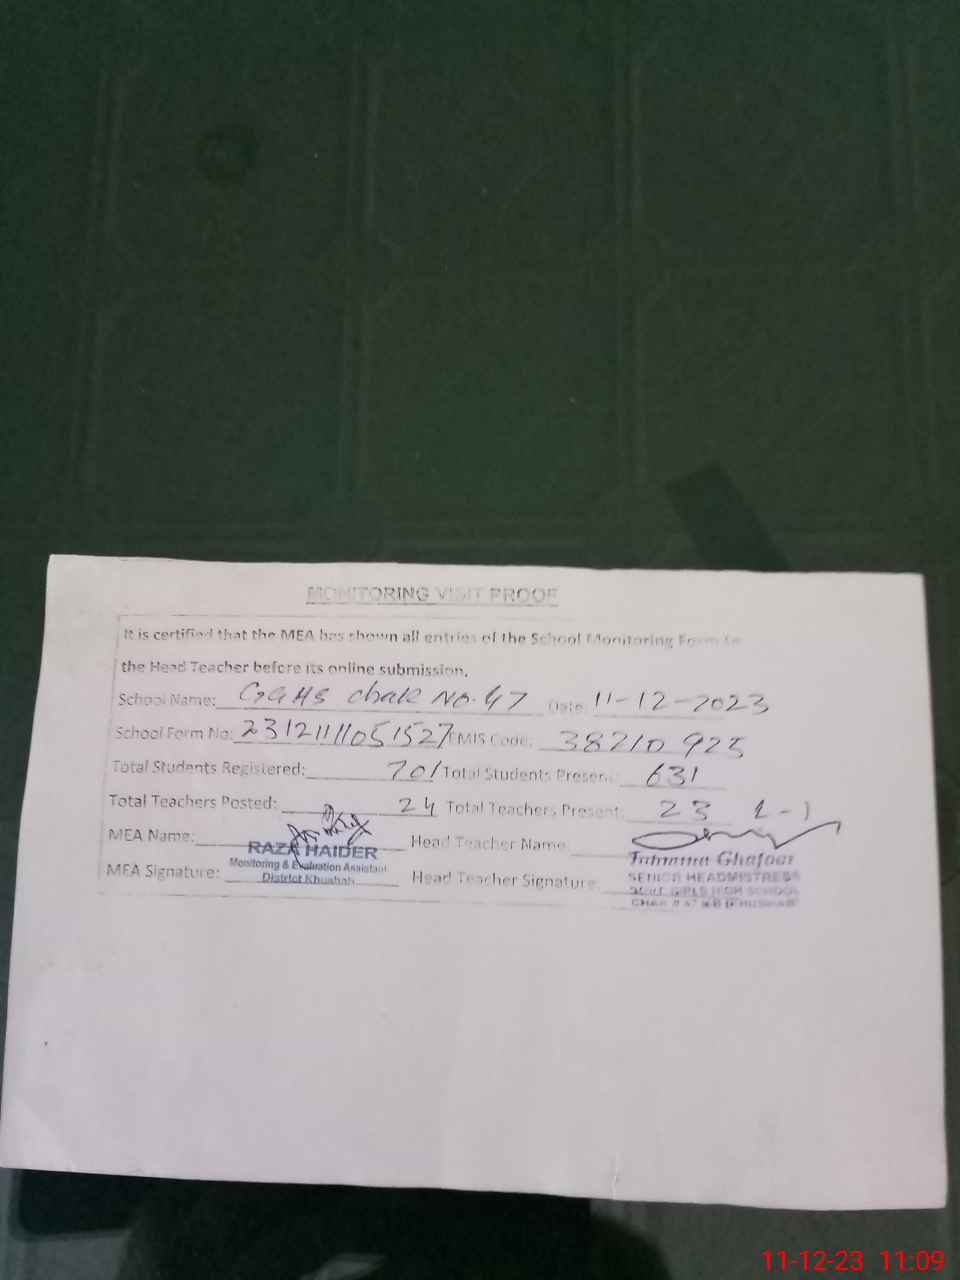 MONITORING VISIT PROOF
It is certified that the MEA has shown all entries of the School Monitoring Form to
the Head Teacher before its online submission.
School Name: GGHS chak No. 47 Date: 11-12-2023
School Form No: 2312111051527 EMIS Code: 38210925
Total Students Registered: 701 Total Students Present: 631
Total Teachers Posted: 24 Total Teachers Present: 23 L-1
MEA Name: Head Teacher Name
RAZA HAIDER
Monitoring & Evaluation Assistant
District Khushab
MEA Signature: Head Teacher Signature:
Ghafoor
SENIOR HEADMISTRESS
GIRLS HIGH SCHOOL
CHAK # 47
11-12-23 11:09